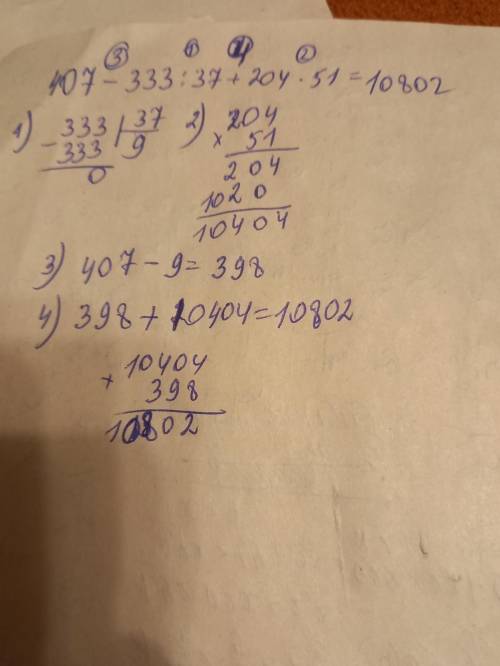 ③ ① 4 ②
407 - 333 : 37 + 204 · 51 = 10802
1) 333 | 37 2) 204
- 333 | 9 × 51
0 204
1020
10404
3) 407 - 9 = 398
4) 398 + 10404 = 10802
10404
× 398
10802